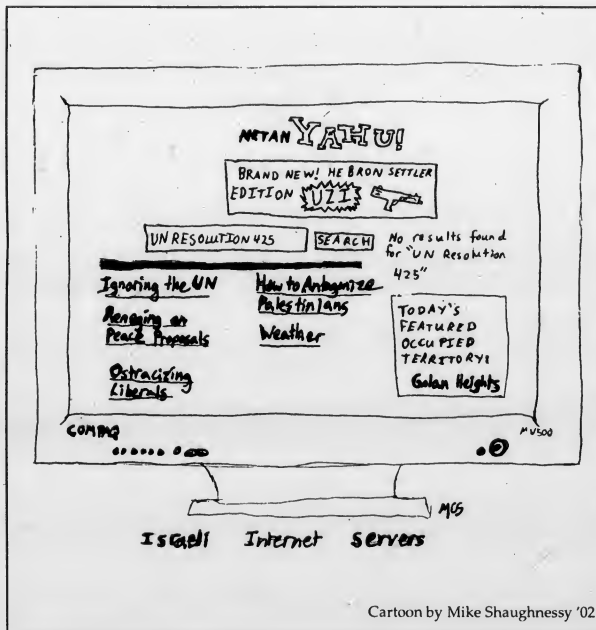 NETAN YAHU!
BRAND NEW! HEBRON SETTLER
EDITION UZI
UN RESOLUTION 425 SEARCH
No results found
for "UN Resolution
425"
Ignoring the UN
Reneging on
Peace Proposals
Ostracizing
Liberals
How to Antagonize
Palestinians
Weather
TODAY'S
FEATURED
OCCUPIED
TERRITORY:
Golan Heights
COMPAQ
MV500
MCS
Israeli Internet Servers
Cartoon by Mike Shaughnessy '02